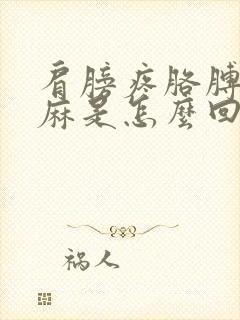 肩膀疼胳膊
麻是怎麼回
祸人